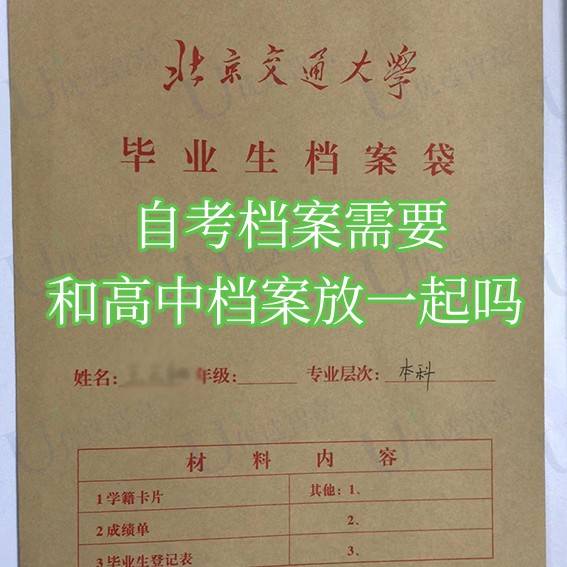 北京交通大学
毕业生档案袋
自考档案需要
和高中档案放一起吗
姓名: 年级: 专业层次: 本科
材料内容
1学籍卡片 其他: 1、
2成绩单 2、
3毕业生登记表 3、